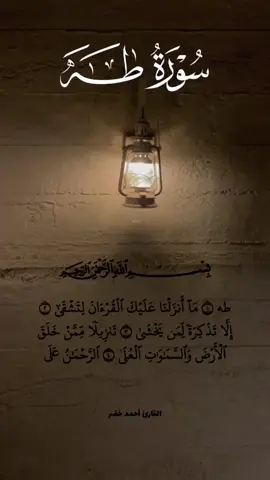 سُورَةُ طَهَ
بِسْمِ اللَّهِ الرَّحْمَٰنِ الرَّحِيمِ
طه ۝١ مَآ أَنزَلْنَا عَلَيْكَ الْقُرْءَانَ لِتَشْقَىٰٓ ۝٢
إِلَّا تَذْكِرَةً لِّمَن يَخْشَىٰ ۝٣ تَنزِيلًا مِّمَّنْ خَلَقَ
الْأَرْضَ وَالسَّمَٰوَٰتِ الْعُلَى ۝٤ الرَّحْمَٰنُ عَلَى
القارئ أحمد خضر